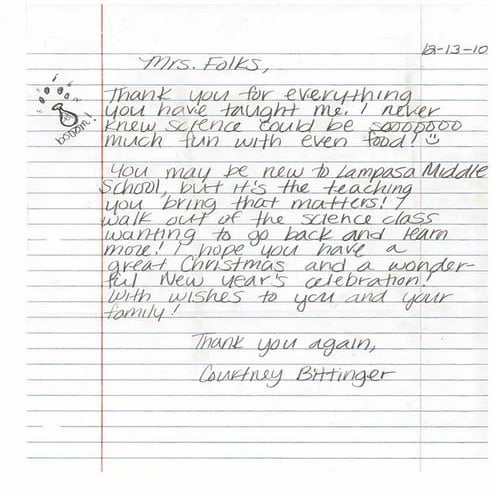 12-13-10
Mrs. Folks,
Thank you for everything
you have taught me. I never
knew science could be sooooooo
much fun with even food! ☺
booom!
You may be new to Lampasa Middle
School, but it's the teaching
you bring that matters! I
walk out of the science class
wanting to go back and learn
more! I hope you have a
great Christmas and a wonder-
ful New Year's celebration!
With wishes to you and your
family!
Thank you again,
Courtney Bittinger